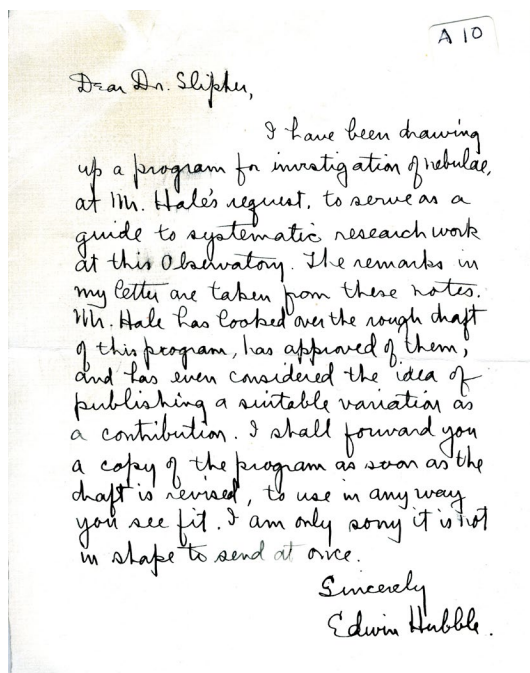 A 10
Dear Dr. Slipher,
I have been drawing
up a program for investigation of nebulae,
at Mr. Hale's request, to serve as a
guide to systematic research work
at this Observatory. The remarks in
my letter are taken from these notes.
Mr. Hale has looked over the rough draft
of this program, has approved of them,
and has even considered the idea of
publishing a suitable variation as
a contribution. I shall forward you
a copy of the program as soon as the
draft is revised, to use in any way
you see fit. I am only sorry it is not
in shape to send at once.
Sincerely
Edwin Hubble.